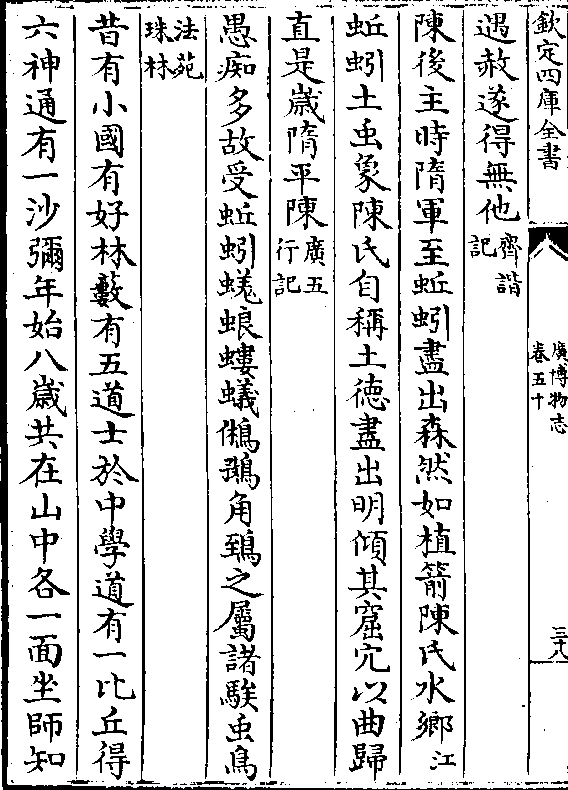 欽定四庫全書
廣博物志
卷五十
三八
遇赦遂得無他齊諧
記
陳後主時隋軍至蚯蚓盡出森然如植箭陳氏水鄉江
蚯蚓土䖝象陳氏自稱土徳盡出明傾其窟穴以曲歸
直是嵗隋平陳廣五
行記
愚痴多故受蚯蚓蜣蜋螻蟻鵂鶹角鵄之屬諸騃䖝鳥
法苑
珠林
昔有小國有好林藪有五道士於中學道有一比丘得
六神通有一沙彌年始八嵗共在山中各一面坐師知